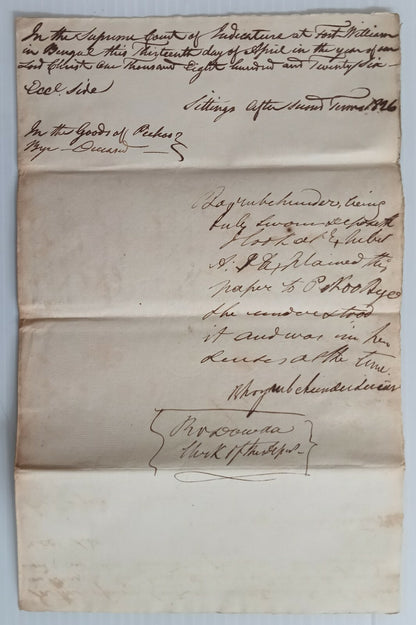 In the Supreme Court of Judicature at Fort William
in Bengal this Thirteenth day of April in the year of our
Lord Christ one thousand Eight hundred and Twenty Six
Eccl. Side
Sittings after second Term 1826
In the Goods of Peekoo
Bye — Deceased —
being
duly sworn deposeth
I look at Exhibit
A. I Explained this
paper to Peekoo Bye
she understood
it and was in her
senses at the time.
Clerk of the Depos